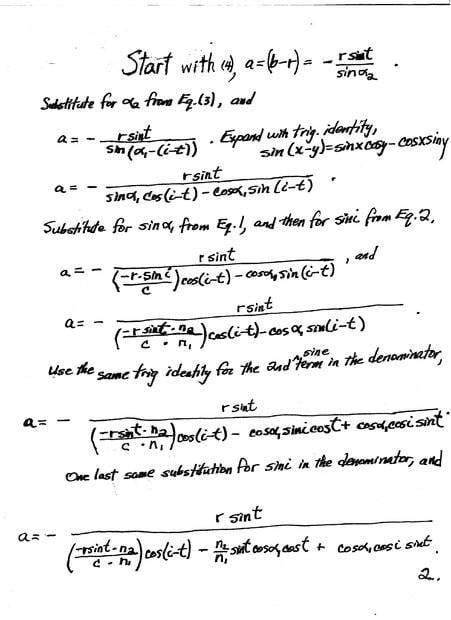 Start with (4), a=(b-r) = - r sint / sinα₂ .
Substitute for α₂ from Eq.(3), and
a = - r sint / sin(α₁-(i-t)) . Expand with trig. identity,
sin(x-y)=sinxcosy-cosxsiny
a = - r sint / sinα₁cos(i-t) - cosα₁sin(i-t) .
Substitute for sinα₁ from Eq.1, and then for sini from Eq.2,
a = - r sint / (-r·sin i / c)cos(i-t) - cosα₁sin(i-t) , and
a = - r sint / (-r sint·n₂ / c·n₁)cos(i-t) - cosα₁sin(i-t) .
Use the same trig identity for the 2nd sine term in the denominator,
a = - r sint / (-rsint·n₂ / c·n₁)cos(i-t) - cosα₁sinicost + cosα₁cosisint .
One last same substitution for sini in the denominator, and
a = - r sint / (-rsint·n₂ / c·n₁)cos(i-t) - n₂/n₁ sintcosα₁cost + cosα₁cosi sint .
2.